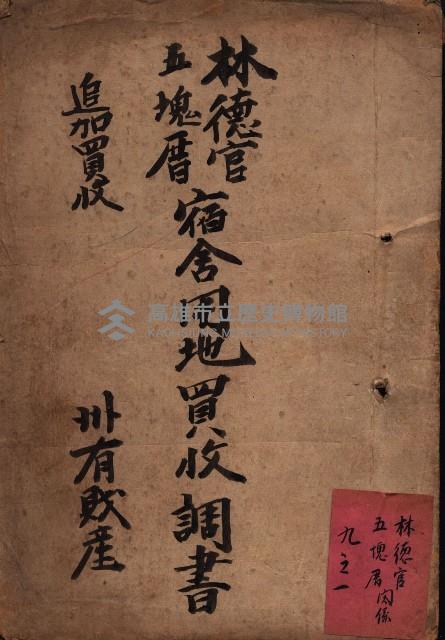 林德官
五塊厝
宿舍用地買收調書
追加買收
州有財產
高雄市立歷史博物館
KAOHSIUNG MUSEUM OF HISTORY
林德官
五塊厝関係
九之一